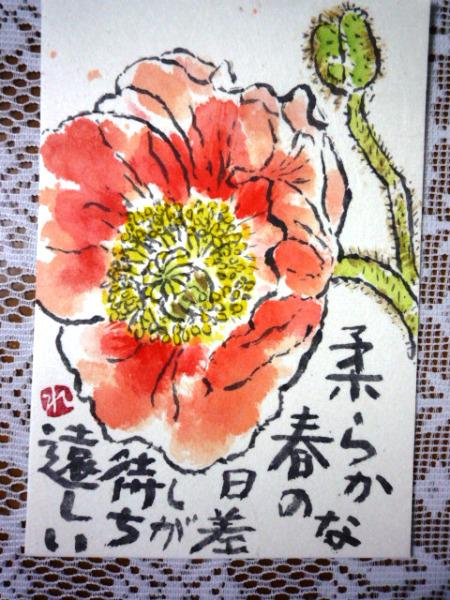 柔らかな
春の
日差
しが
待ち
遠しい
れ